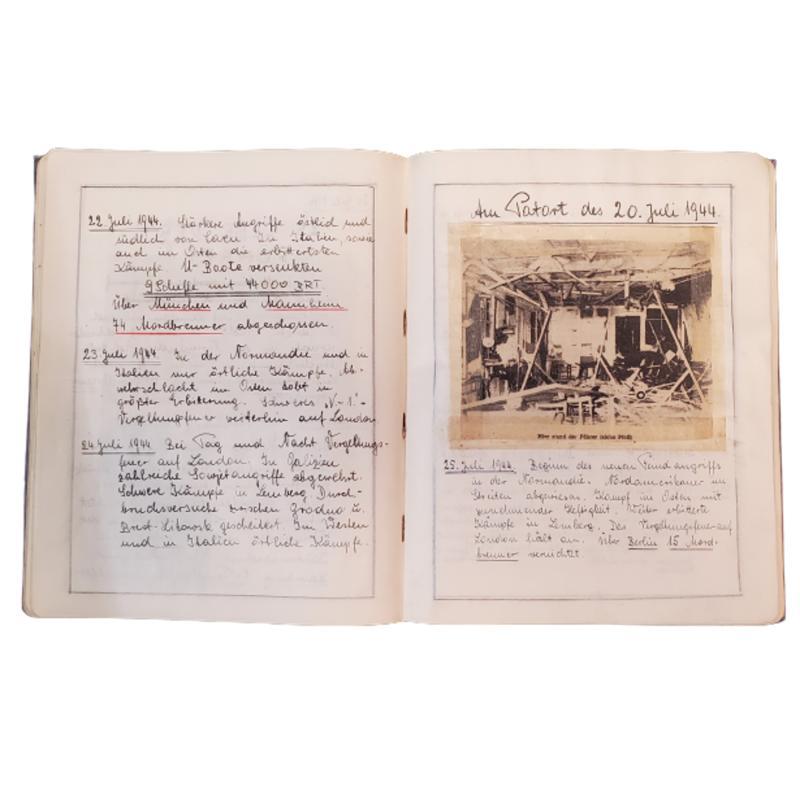 22 Juli 1944. Stärkere Angriffe östlich und
südlich von Caen. In Italien, sowie
auch im Osten die erbittertsten
Kämpfe. U-Boote versenkten
9 Schiffe mit 44000 BRT.
Über München und Mannheim
74 Mordbrenner abgeschossen.
23. Juli 1944 In der Normandie und in
Italien nur örtliche Kämpfe. Ab-
wehrschlacht im Osten tobt in
größter Erbitterung. Schweres "V.-1."
Vergeltungsfeuer weiterhin auf London
24. Juli 1944 Bei Tag und Nacht Vergeltungs-
feuer auf London. In Galizien
zahlreiche Sowjetangriffe abgewehrt.
Schwere Kämpfe in Lemberg. Durch-
bruchsversuche zwischen Grodno u.
Brest-Litowsk gescheitert. Im Westen
und in Italien örtliche Kämpfe.
Am Tatort des 20. Juli 1944.
Hier stand der Führer (siehe Pfeil)
25. Juli 1944. Beginn des neuen Feindangriffs
in der Normandie. Nordamerikaner im
Scheiten abgewiesen. Kampf im Osten mit
zunehmender Heftigkeit. Weiter erbitterte
Kämpfe in Lemberg. Das Vergeltungsfeuer auf
London hält an. Über Berlin 15 Mord-
brenner vernichtet